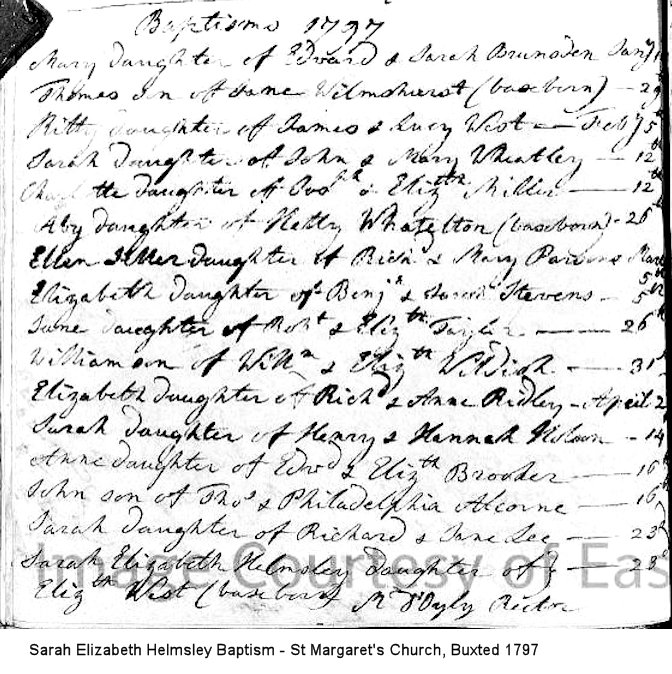 Baptisms 1797
Mary Daughter of Edward & Sarah Brunsden Jany
Thomas Son off Jane Wilmshurst (baseborn) - 29
Kitty Daughter of James & Lucy West - Feby 5th
Sarah Daughter of John & Mary Wheatley - 12th
Charlotte Daughter off Josph & Elizth Miller - 12th
Aby Daughter of Hetty Whatelton (baseborn) - 26th
Ellen Daughter of Richd & Mary Parsons
5th
Elizabeth Daughter of Benjn & Sarah Stevens - 5th
Jane Daughter of Robt & Elizth Taylor - 26th
William son of Willm & Elizth Wildish - 31
Elizabeth Daughter of Richd & Anne Ridley - April 2
Sarah Daughter of Henry & Hannah - 14
Anne Daughter of Edwd & Elizth Brooker - 16th
John son of Thos & Philadelphia Alcorne - 16th
Sarah Daughter of Richard & Jane Lee - 23
Sarah Elizabeth Helmsley Daughter of } - 23
Elizth West (baseborn) Mr D'Oyly Rector
Image Courtesy of Eas
Sarah Elizabeth Helmsley Baptism - St Margaret's Church, Buxted 1797